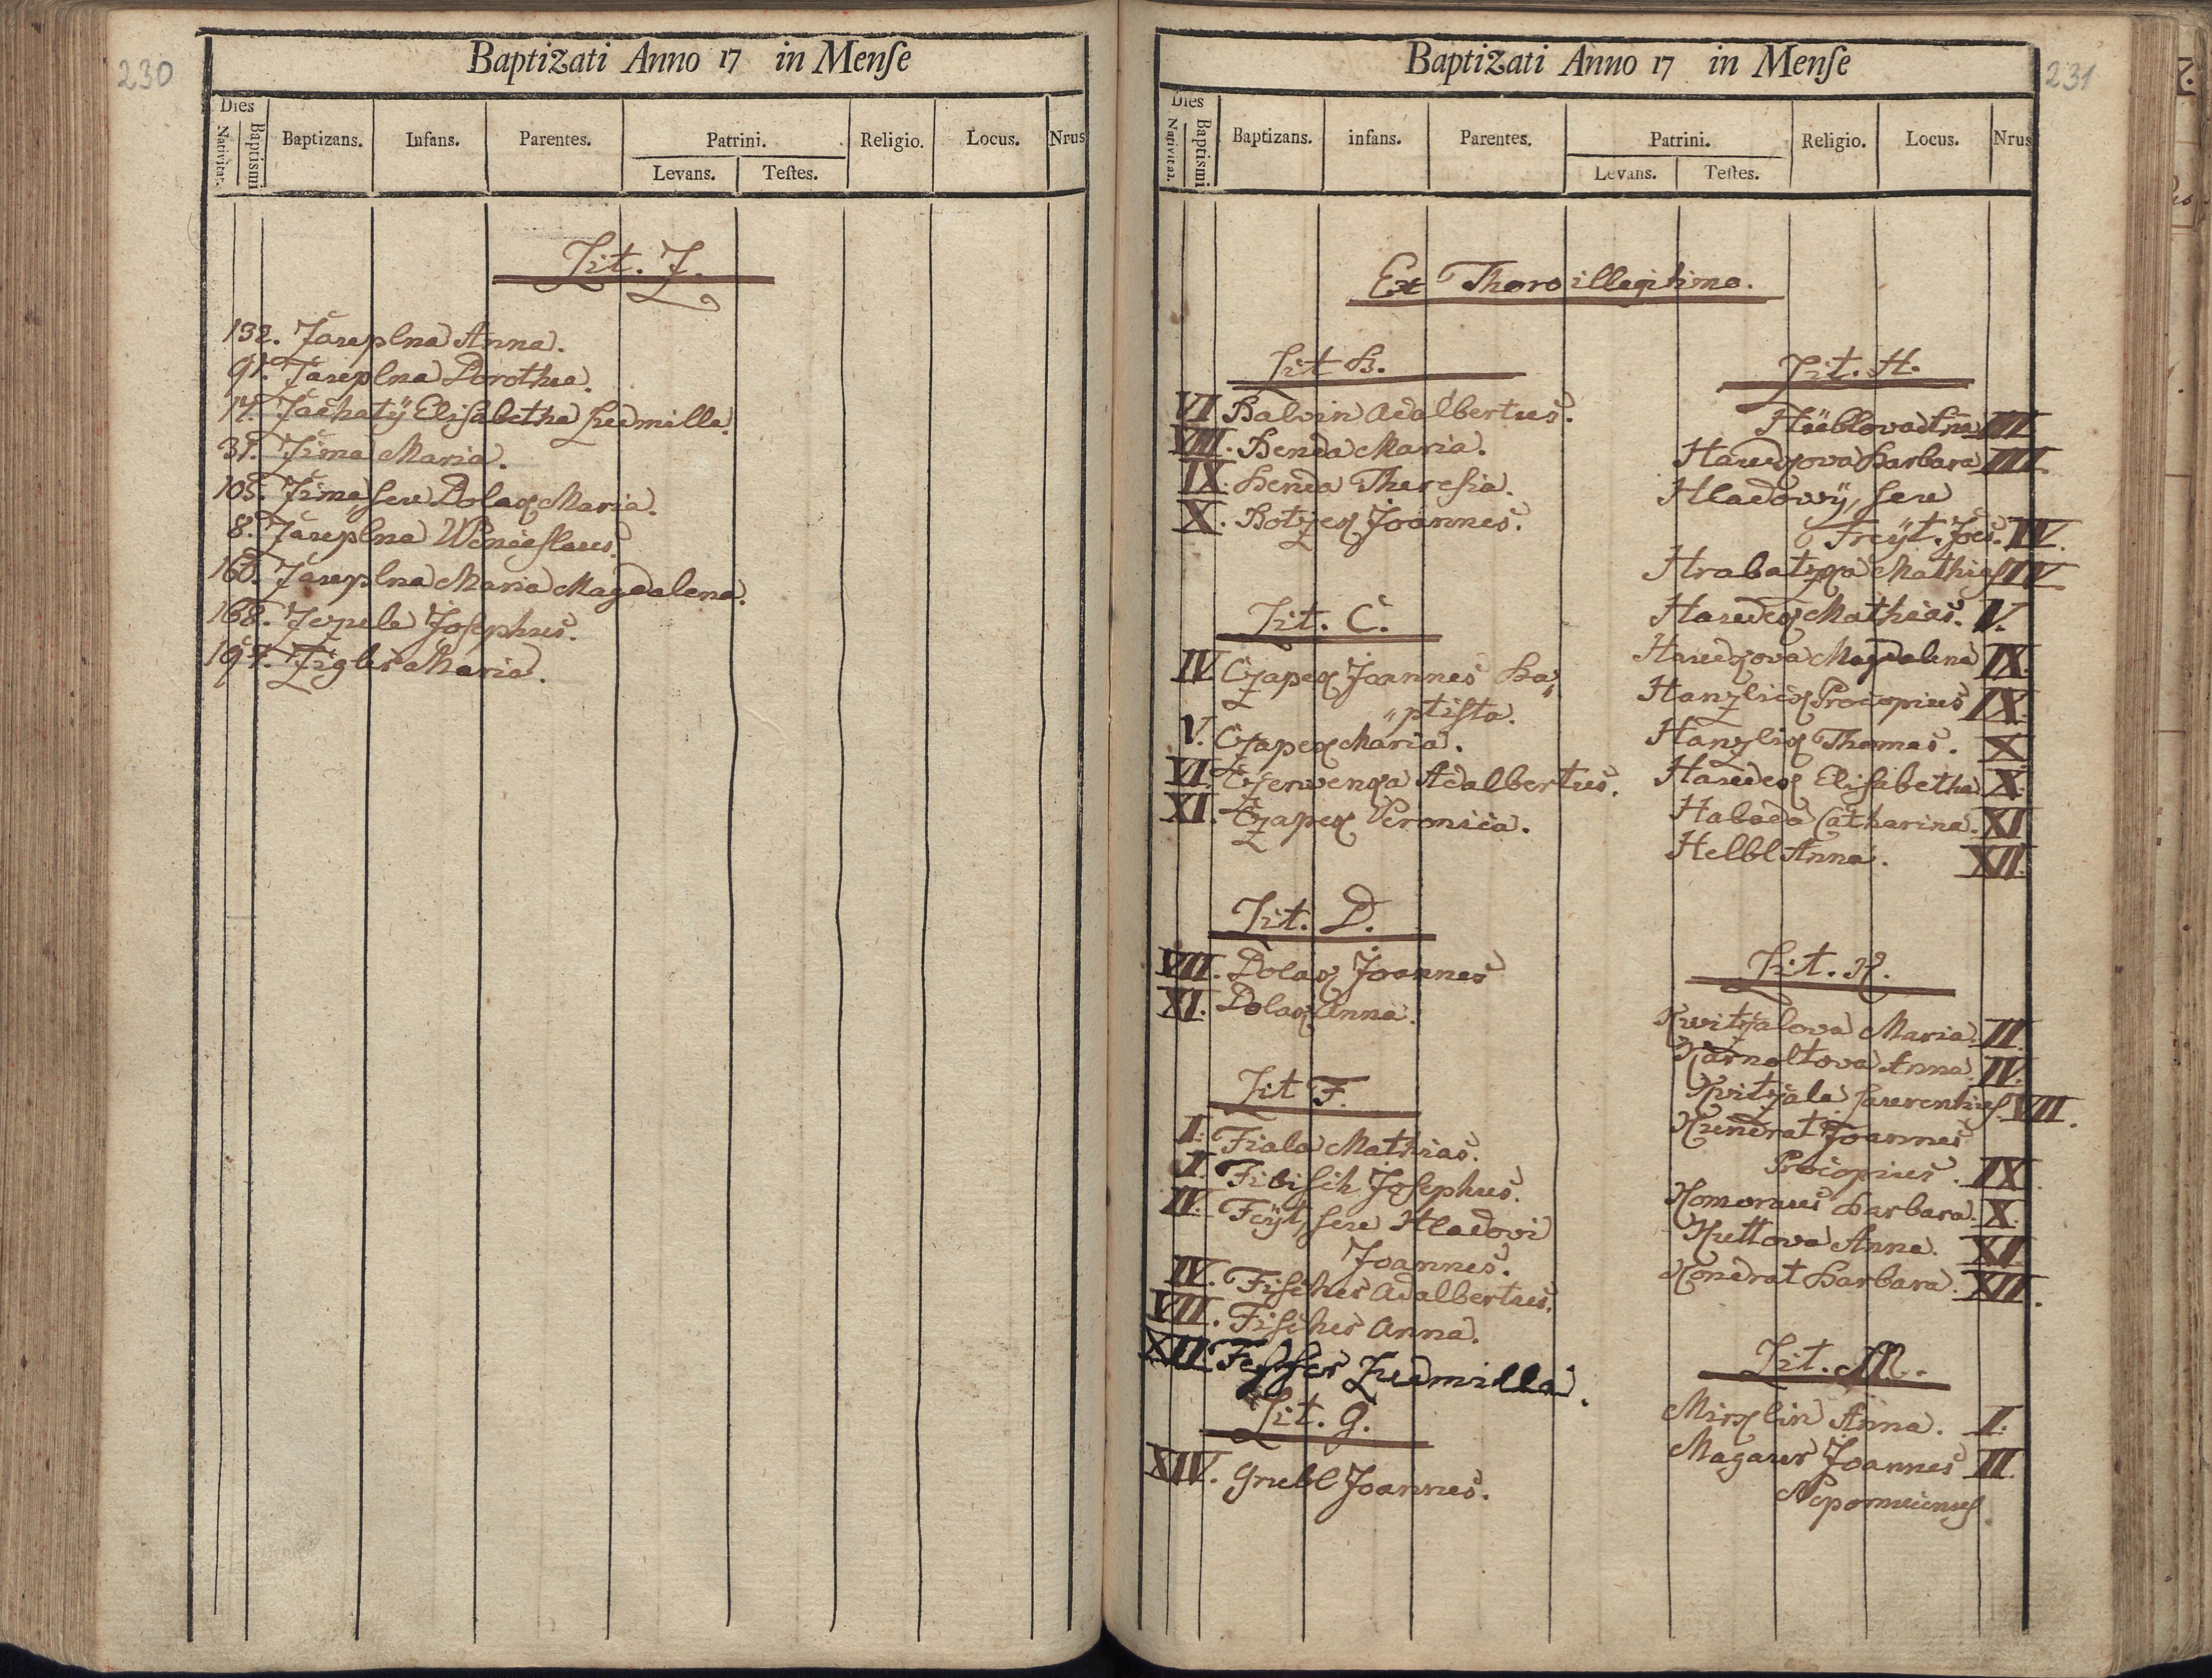 230
Baptizati Anno 17 in Menſe
Dies
Nativitat.
Baptismi
Baptizans.
Infans.
Parentes.
Patrini.
Levans.
Teſtes.
Religio.
Locus.
Nrus
Lit. Z.
132. Zauplna Anna.
91. Zauplna Dorothea.
14. Zachatÿ Eliſabetha Ludmilla.
31. Zima Maria.
105. Zima ſeu Dolaq Maria.
8. Zauplna Wenceſlaus.
160. Zauplna Maria Magdalena.
168. Joſephus.
197. Zigler Maria.
231
Baptizati Anno 17 in Menſe
Dies
Nativitat.
Baptismi
Baptizans.
infans.
Parentes.
Patrini.
Levans.
Teſtes.
Religio.
Locus.
Nrus
Ex Thoro illegitimo.
Lit B.
VI Balvin Adalbertus.
VIII. Benda Maria.
IX. Benda Thereſia.
X. Botzeq Joannes.
Lit. C.
IV Czapeq Joannes Ba„
„ptiſta.
V. Czapeq Maria.
VI. Czerwenqa Adalbertus.
XI. Czapeq Veronica.
Lit. D.
VII. Dolaq Joannes
XI. Dolaq Anna.
Lit F.
I. Fiala Mathias.
I. Fibiſch Joſephus.
IV. Feÿt, ſeu Hladovi
Joannes.
IV. Fiſcher Adalbertus.
VII. Fiſcher Anna.
XII Ludmilla.
Lit. G.
XIV. Grubl Joannes.
Lit. H.
Hüblova III
Haudqova Barbara III.
Hladowÿ, ſeu
Freÿt. Joes. IV.
Hrabatzqa Mathias IV
Haudeq Mathias. V.
Haudqova Magdalena IX.
Hanzlicq Procopius IX.
Hanzliq Thomas. X
Haudeq Eliſabetha X.
Habada Catharina. XI
Helbl Anna. XII.
Lit. K.
Kwitzalova Maria. II.
Karnoltova Anna. IV.
Kvitzala Laurentius. VII.
Kundrat Joannes
Procopius. IX.
Komoraus Barbara. X.
Kuttova Anna. XI
Kondrat Barbara. XII.
Lit. M.
Mirqlin Anna. I.
Magaur Joannes II.
Nepomucenus